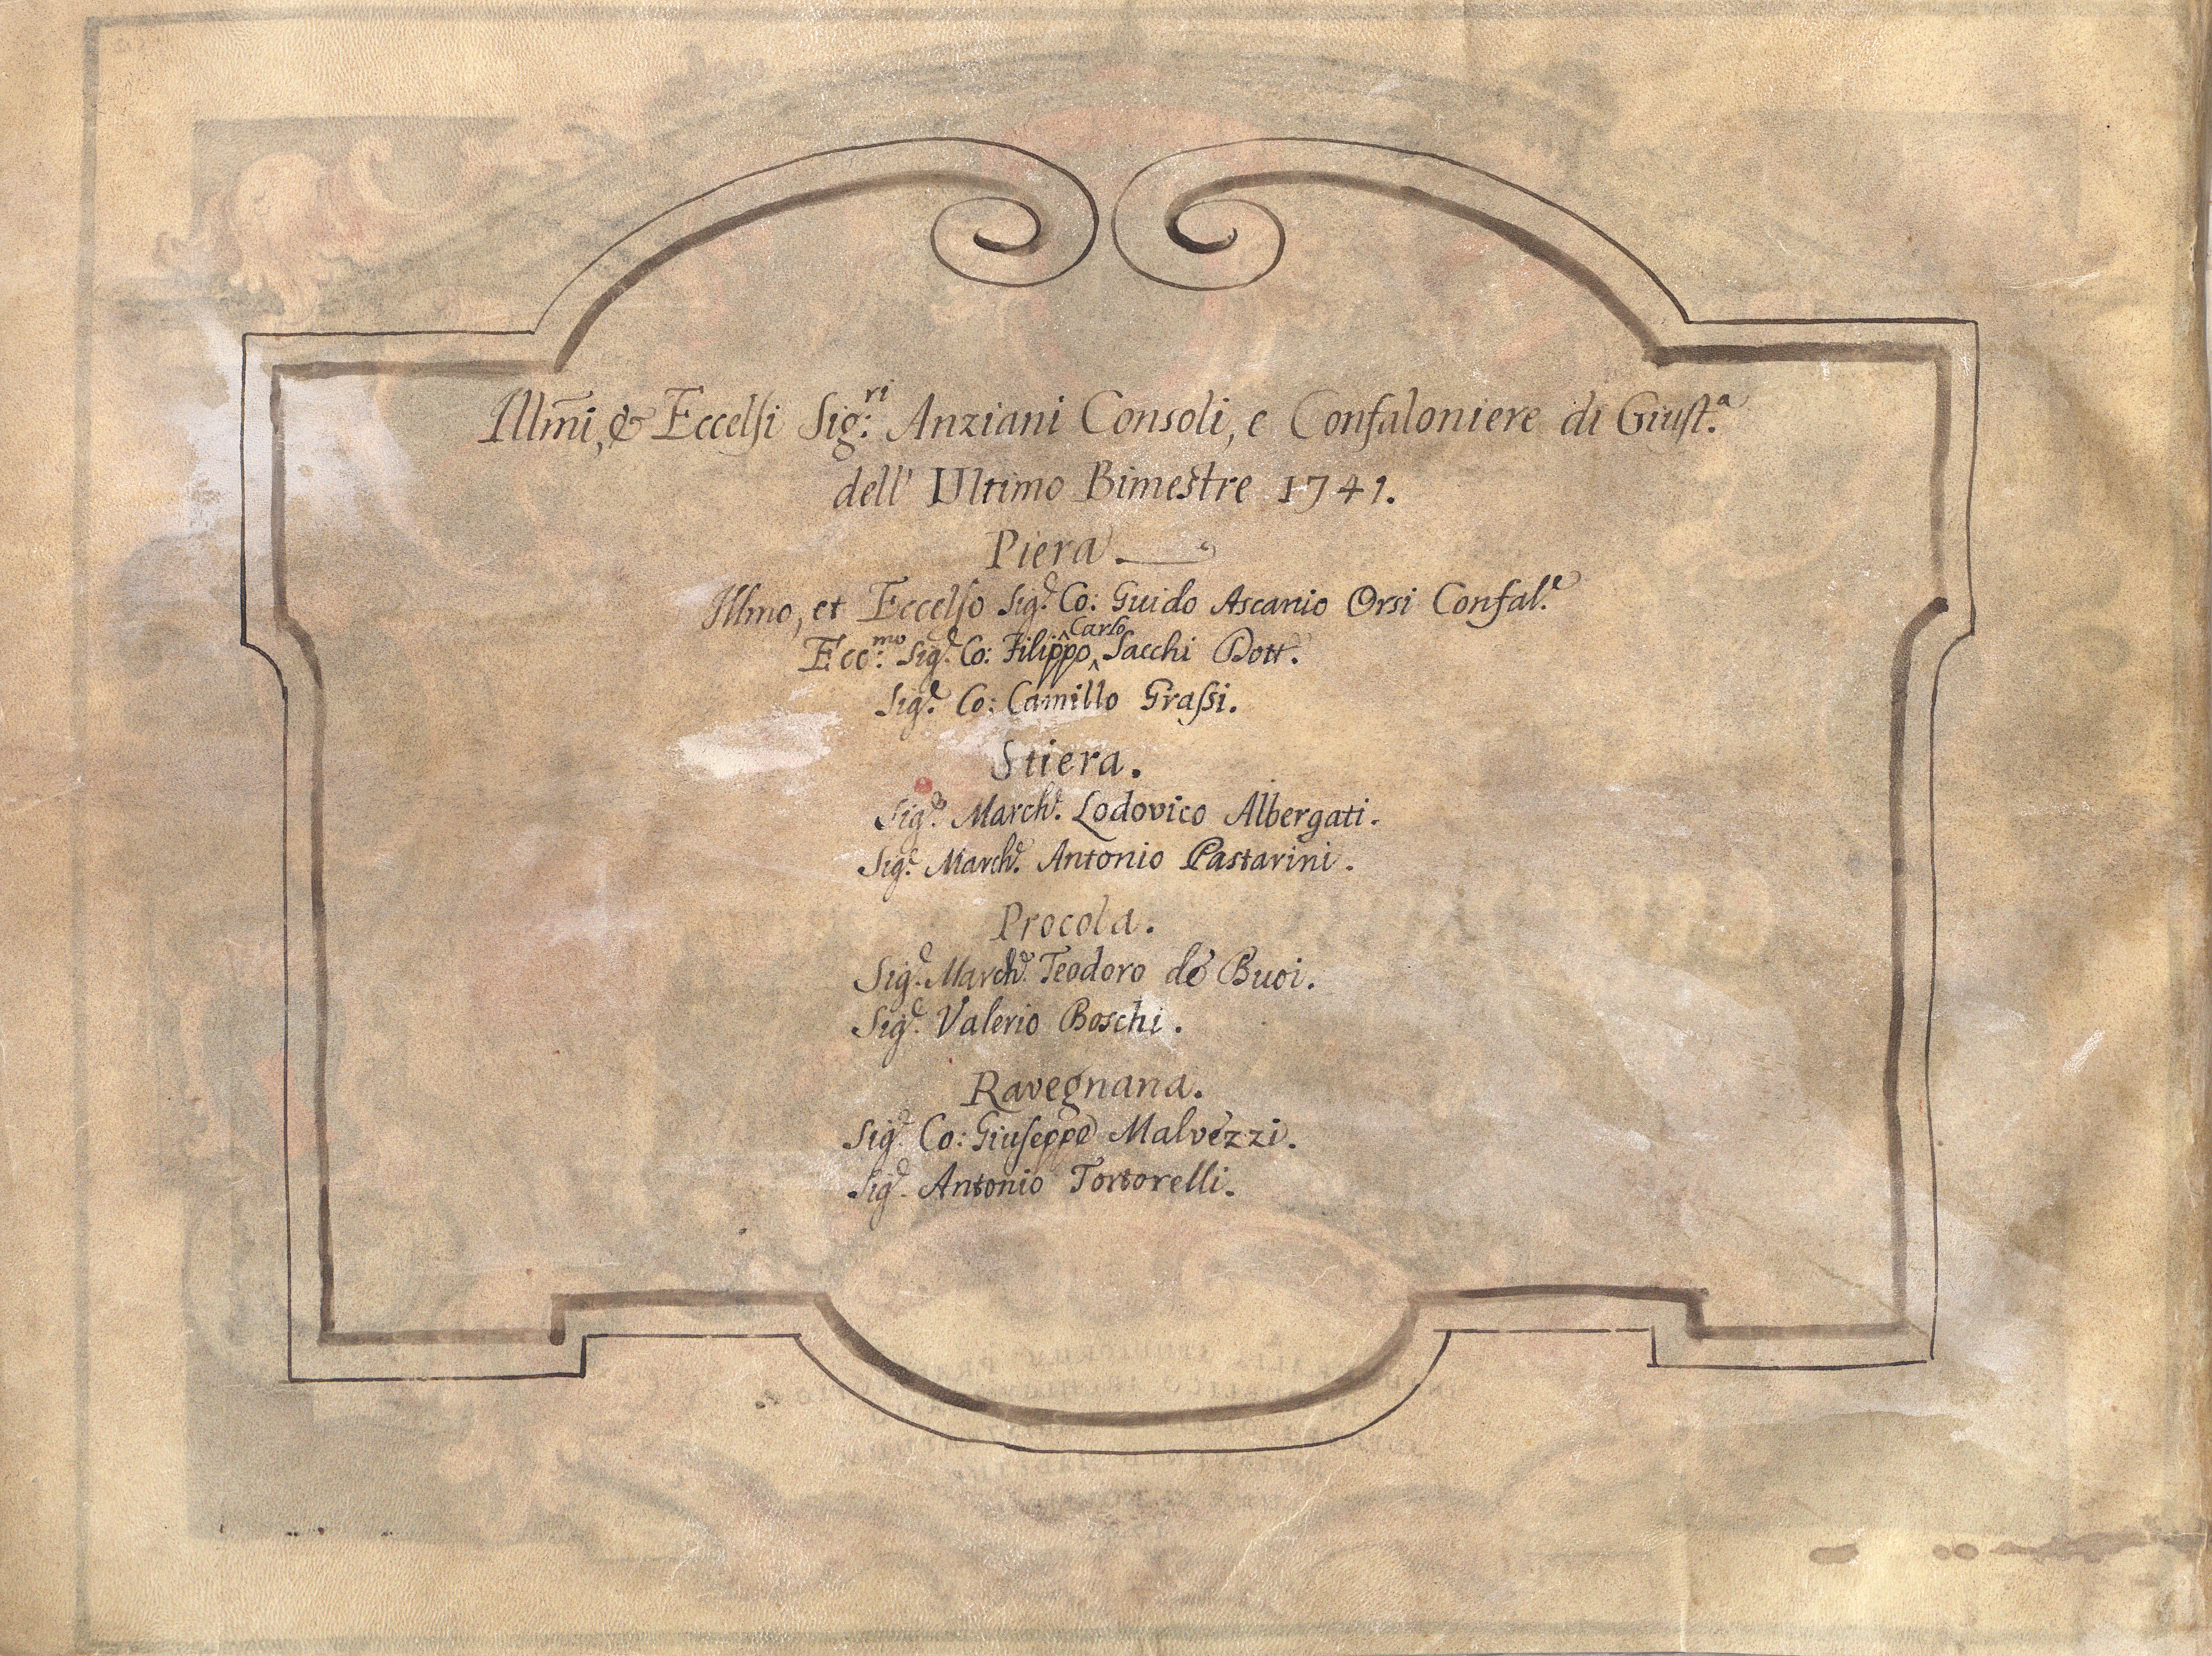 Illm̃i, & Eccelsi Sig:ri Anziani Consoli, e Confaloniere di Giust.a
dell' Ultimo Bimestre 1741.
Piera
Illmo, et Eccelso Sig.r Co: Guido Ascanio Orsi Confal.e
Ecc:mo Sig.r Co: Filippo Carlo Sacchi Dott.
Sig.r Co: Camillo Grassi.
Stiera.
Sig.r March.e Lodovico Albergati.
Sig.r March.e Antonio Pastarini.
Procola.
Sig.r March.e Teodoro de' Buoi.
Sig.r Valerio Boschi.
Ravegnana.
Sig.r Co: Giuseppe Malvezzi.
Sig.r Antonio Tortorelli.